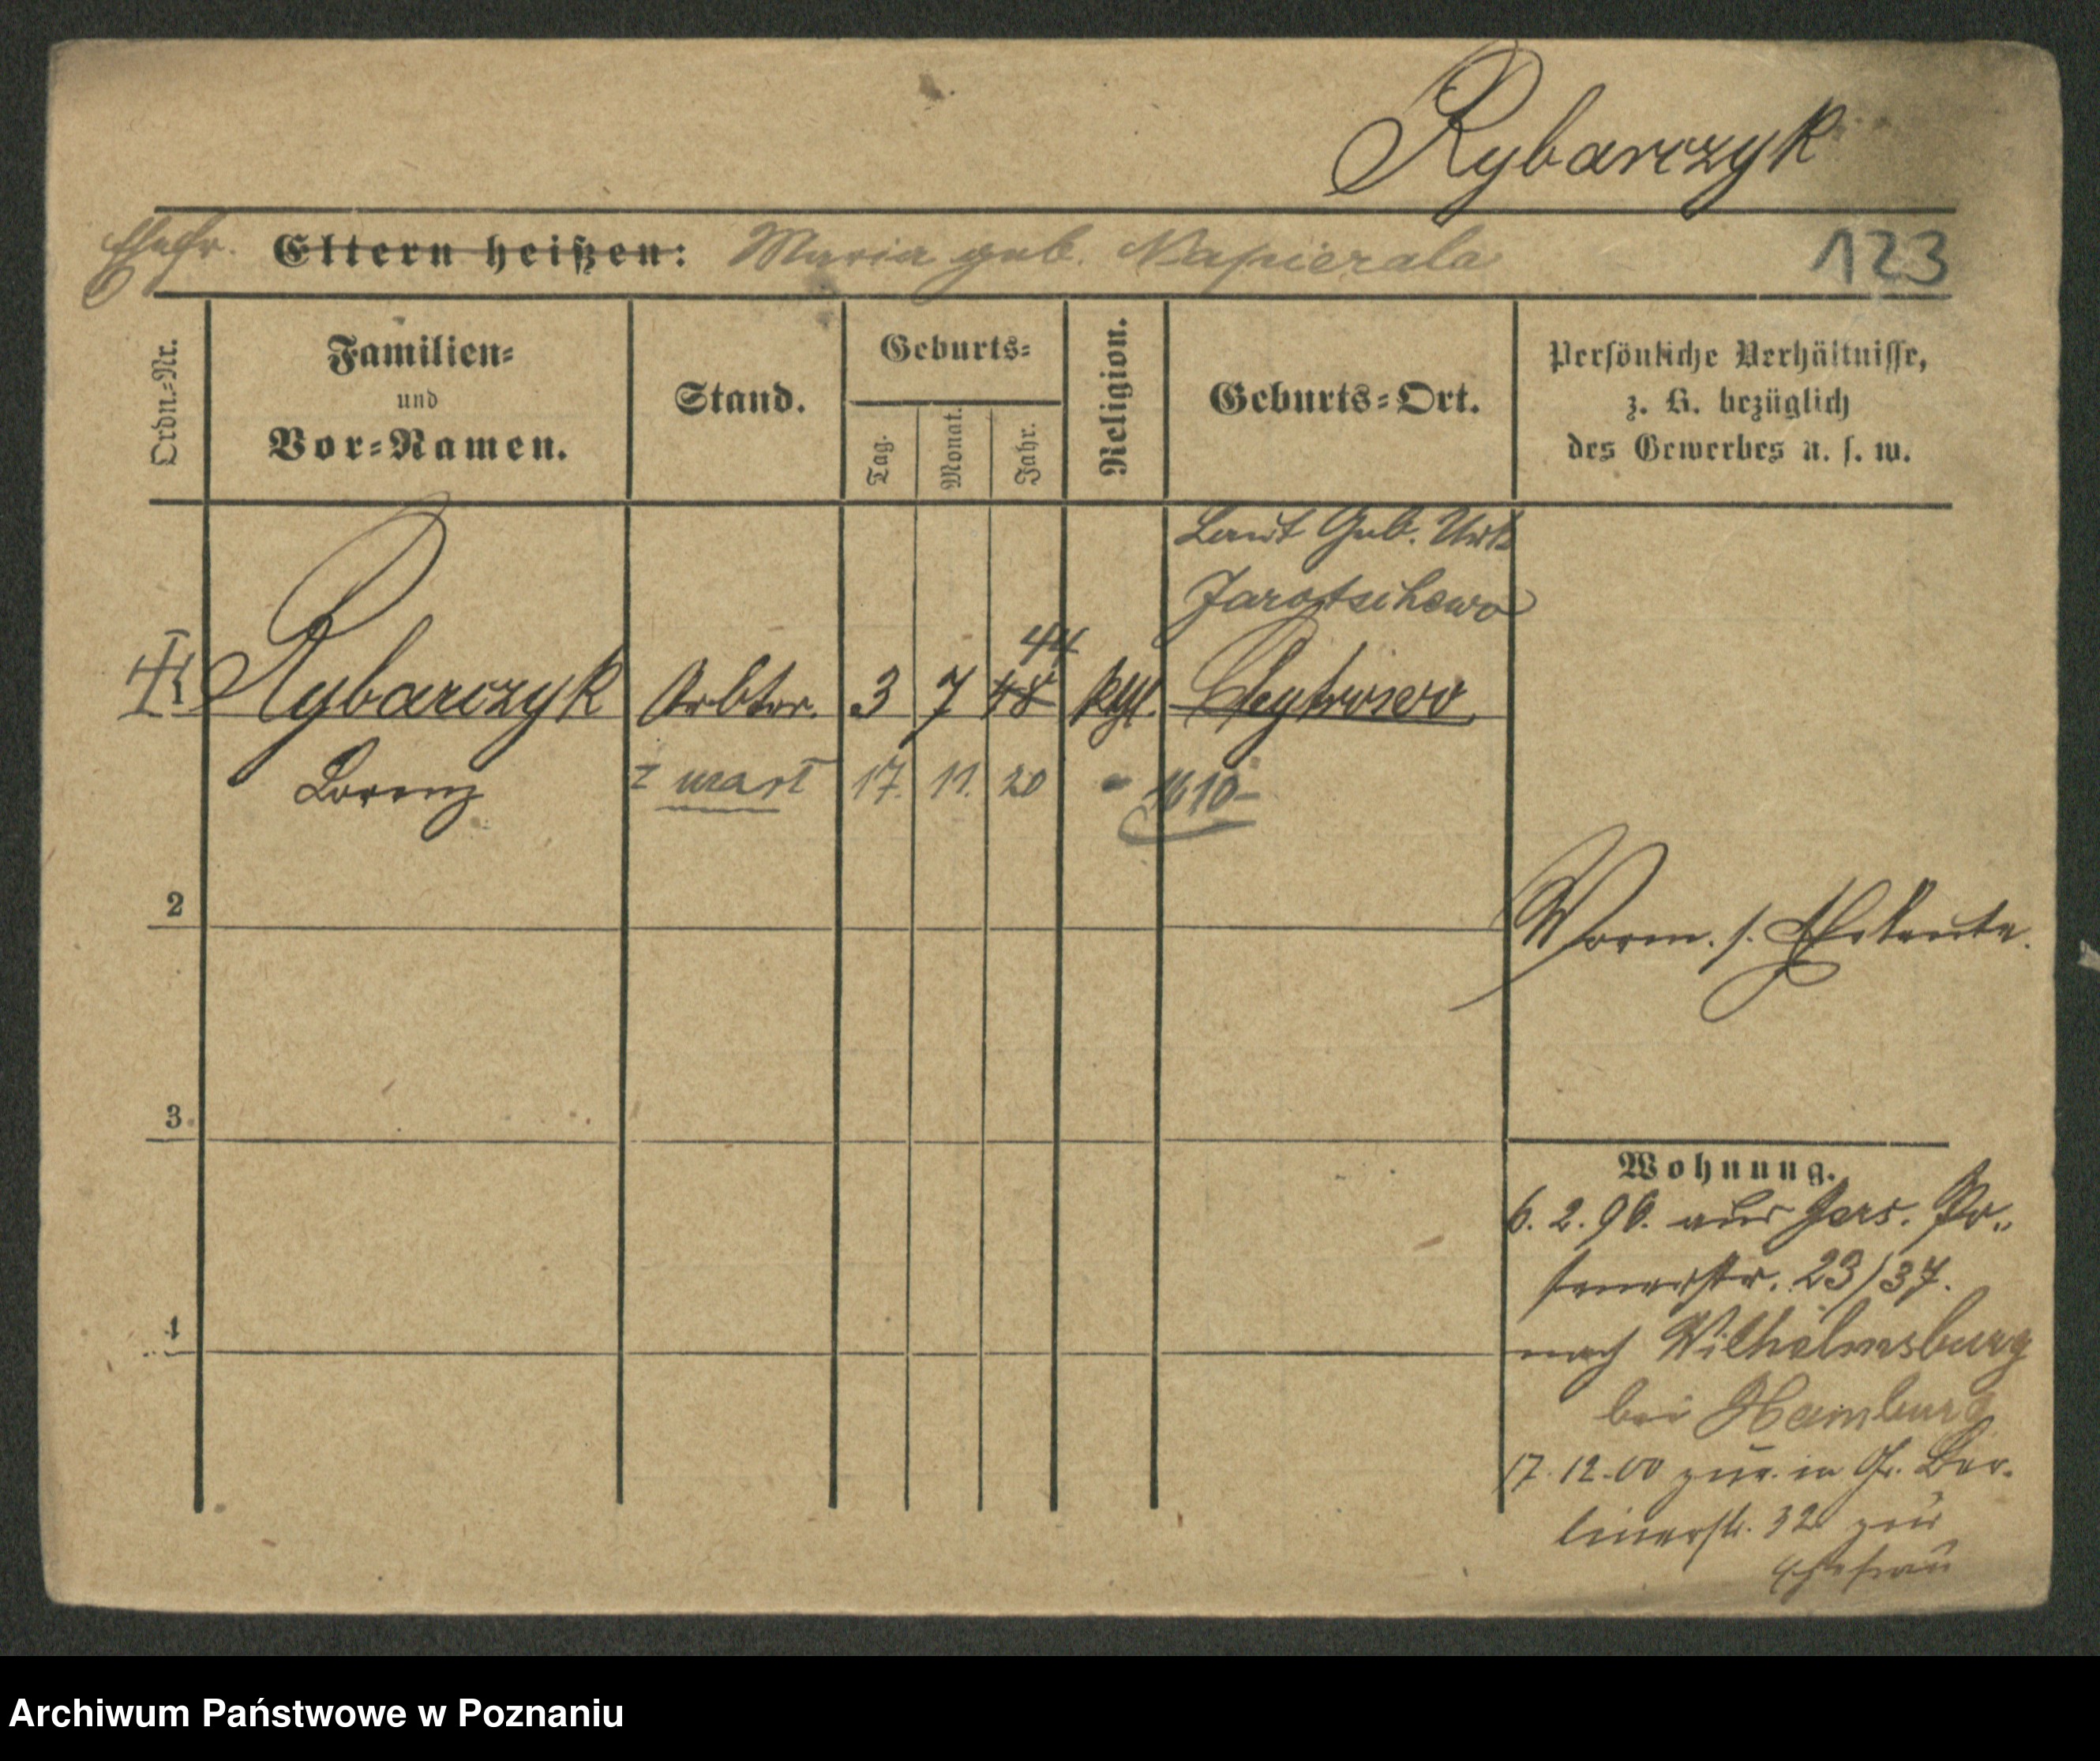 Rybarczyk
Ehefr. Eltern heißen: Maria geb. Napierala
123
Ordn.-Nr.
Familien-
und
Vor-Namen.
Stand.
Geburts-
Tag.
Monat.
Jahr.
Religion.
Geburts-Ort.
Persönliche Verhältnisse,
z. B. bezüglich
des Gewerbes u. s. w.
Laut Geb. Urk.
Jarotschewo
44
1 Rybarczyk Arbtr. 3 7 48 kth.
Lorenz zmarł 17. 11. 20 1610
2
3
4
Worm. s. Eheleute.
Wohnung.
6. 2. 96. aus Jers. Po-
senerstr. 23/37.
nach Wilhelmsburg
bei Hamburg
17. 12. 00 zur. in Gr. Ber-
linerstr. 32 zur
Ehefrau
Archiwum Państwowe w Poznaniu